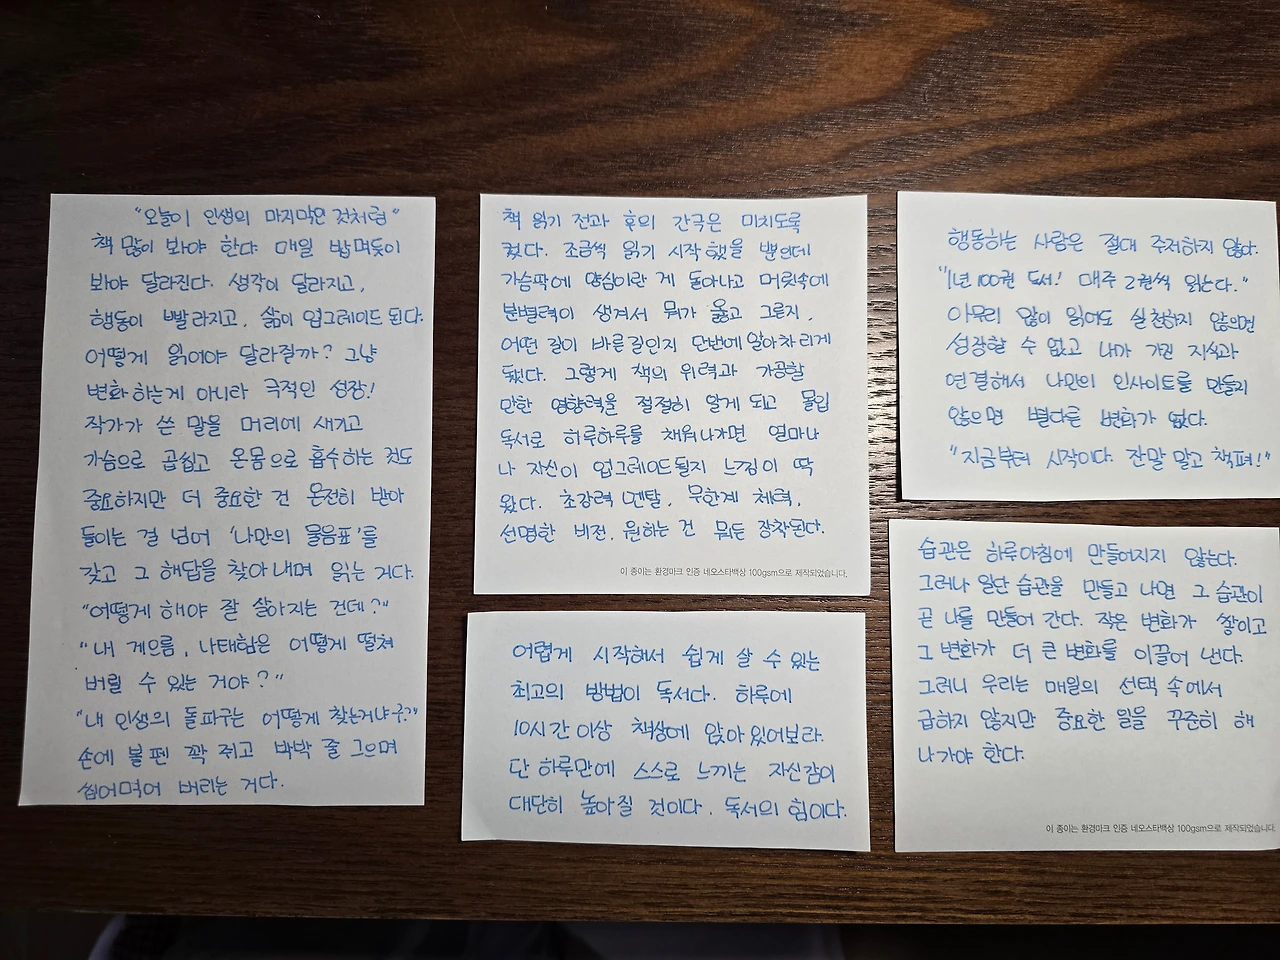 "오늘이 인생의 마지막인 것처럼"
책 많이 봐야 한다 매일 밥먹듯이
봐야 달라진다. 생각이 달라지고,
행동이 빨라지고, 삶이 업그레이드 된다.
어떻게 읽어야 달라질까? 그냥
변화하는게 아니라 극적인 성장!
작가가 쓴 말을 머리에 새기고
가슴으로 곱씹고 온몸으로 흡수하는 것도
중요하지만 더 중요한 건 온전히 받아
들이는 걸 넘어 '나만의 물음표'를
갖고 그 해답을 찾아내며 읽는 거다.
"어떻게 해야 잘 살아지는 건데?"
"내 게으름, 나태함은 어떻게 떨쳐
버릴 수 있는 거야?"
"내 인생의 돌파구는 어떻게 찾는거냐구?"
손에 볼펜 꽉 쥐고 박박 줄 그으며
씹어먹어 버리는 거다.
책 읽기 전과 후의 간극은 미치도록
컸다. 조금씩 읽기 시작했을 뿐인데
가슴팍에 양심이란 게 돋아나고 머릿속에
분별력이 생겨서 뭐가 옳고 그른지,
어떤 길이 바른길인지 단번에 알아차리게
됐다. 그렇게 책의 위력과 가공할
만한 영향력을 절절히 알게 되고 몰입
독서로 하루하루를 채워나가면 얼마나
나 자신이 업그레이드될지 느낌이 딱
왔다. 초강력 멘탈, 무한계 체력,
선명한 비전, 원하는 건 뭐든 장착된다.
이 종이는 환경마크 인증 네오스타백상 100gsm으로 제작되었습니다.
어렵게 시작해서 쉽게 살 수 있는
최고의 방법이 독서다. 하루에
10시간 이상 책상에 앉아 있어보라.
단 하루만에 스스로 느끼는 자신감이
대단히 높아질 것이다. 독서의 힘이다.
행동하는 사람은 절대 주저하지 않아.
"1년 100권 독서! 매주 2권씩 읽는다."
아무리 많이 읽어도 실천하지 않으면
성장할 수 없고 내가 가진 지식과
연결해서 나만의 인사이트를 만들지
않으면 별다른 변화가 없다.
"지금부터 시작이다. 잔말 말고 책펴!"
습관은 하루아침에 만들어지지 않는다.
그러나 일단 습관을 만들고 나면 그 습관이
곧 나를 만들어 간다. 작은 변화가 쌓이고
그 변화가 더 큰 변화를 이끌어 낸다.
그러니 우리는 매일의 선택 속에서
급하지 않지만 중요한 일을 꾸준히 해
나가야 한다.
이 종이는 환경마크 인증 네오스타백상 100gsm으로 제작되었습니다.